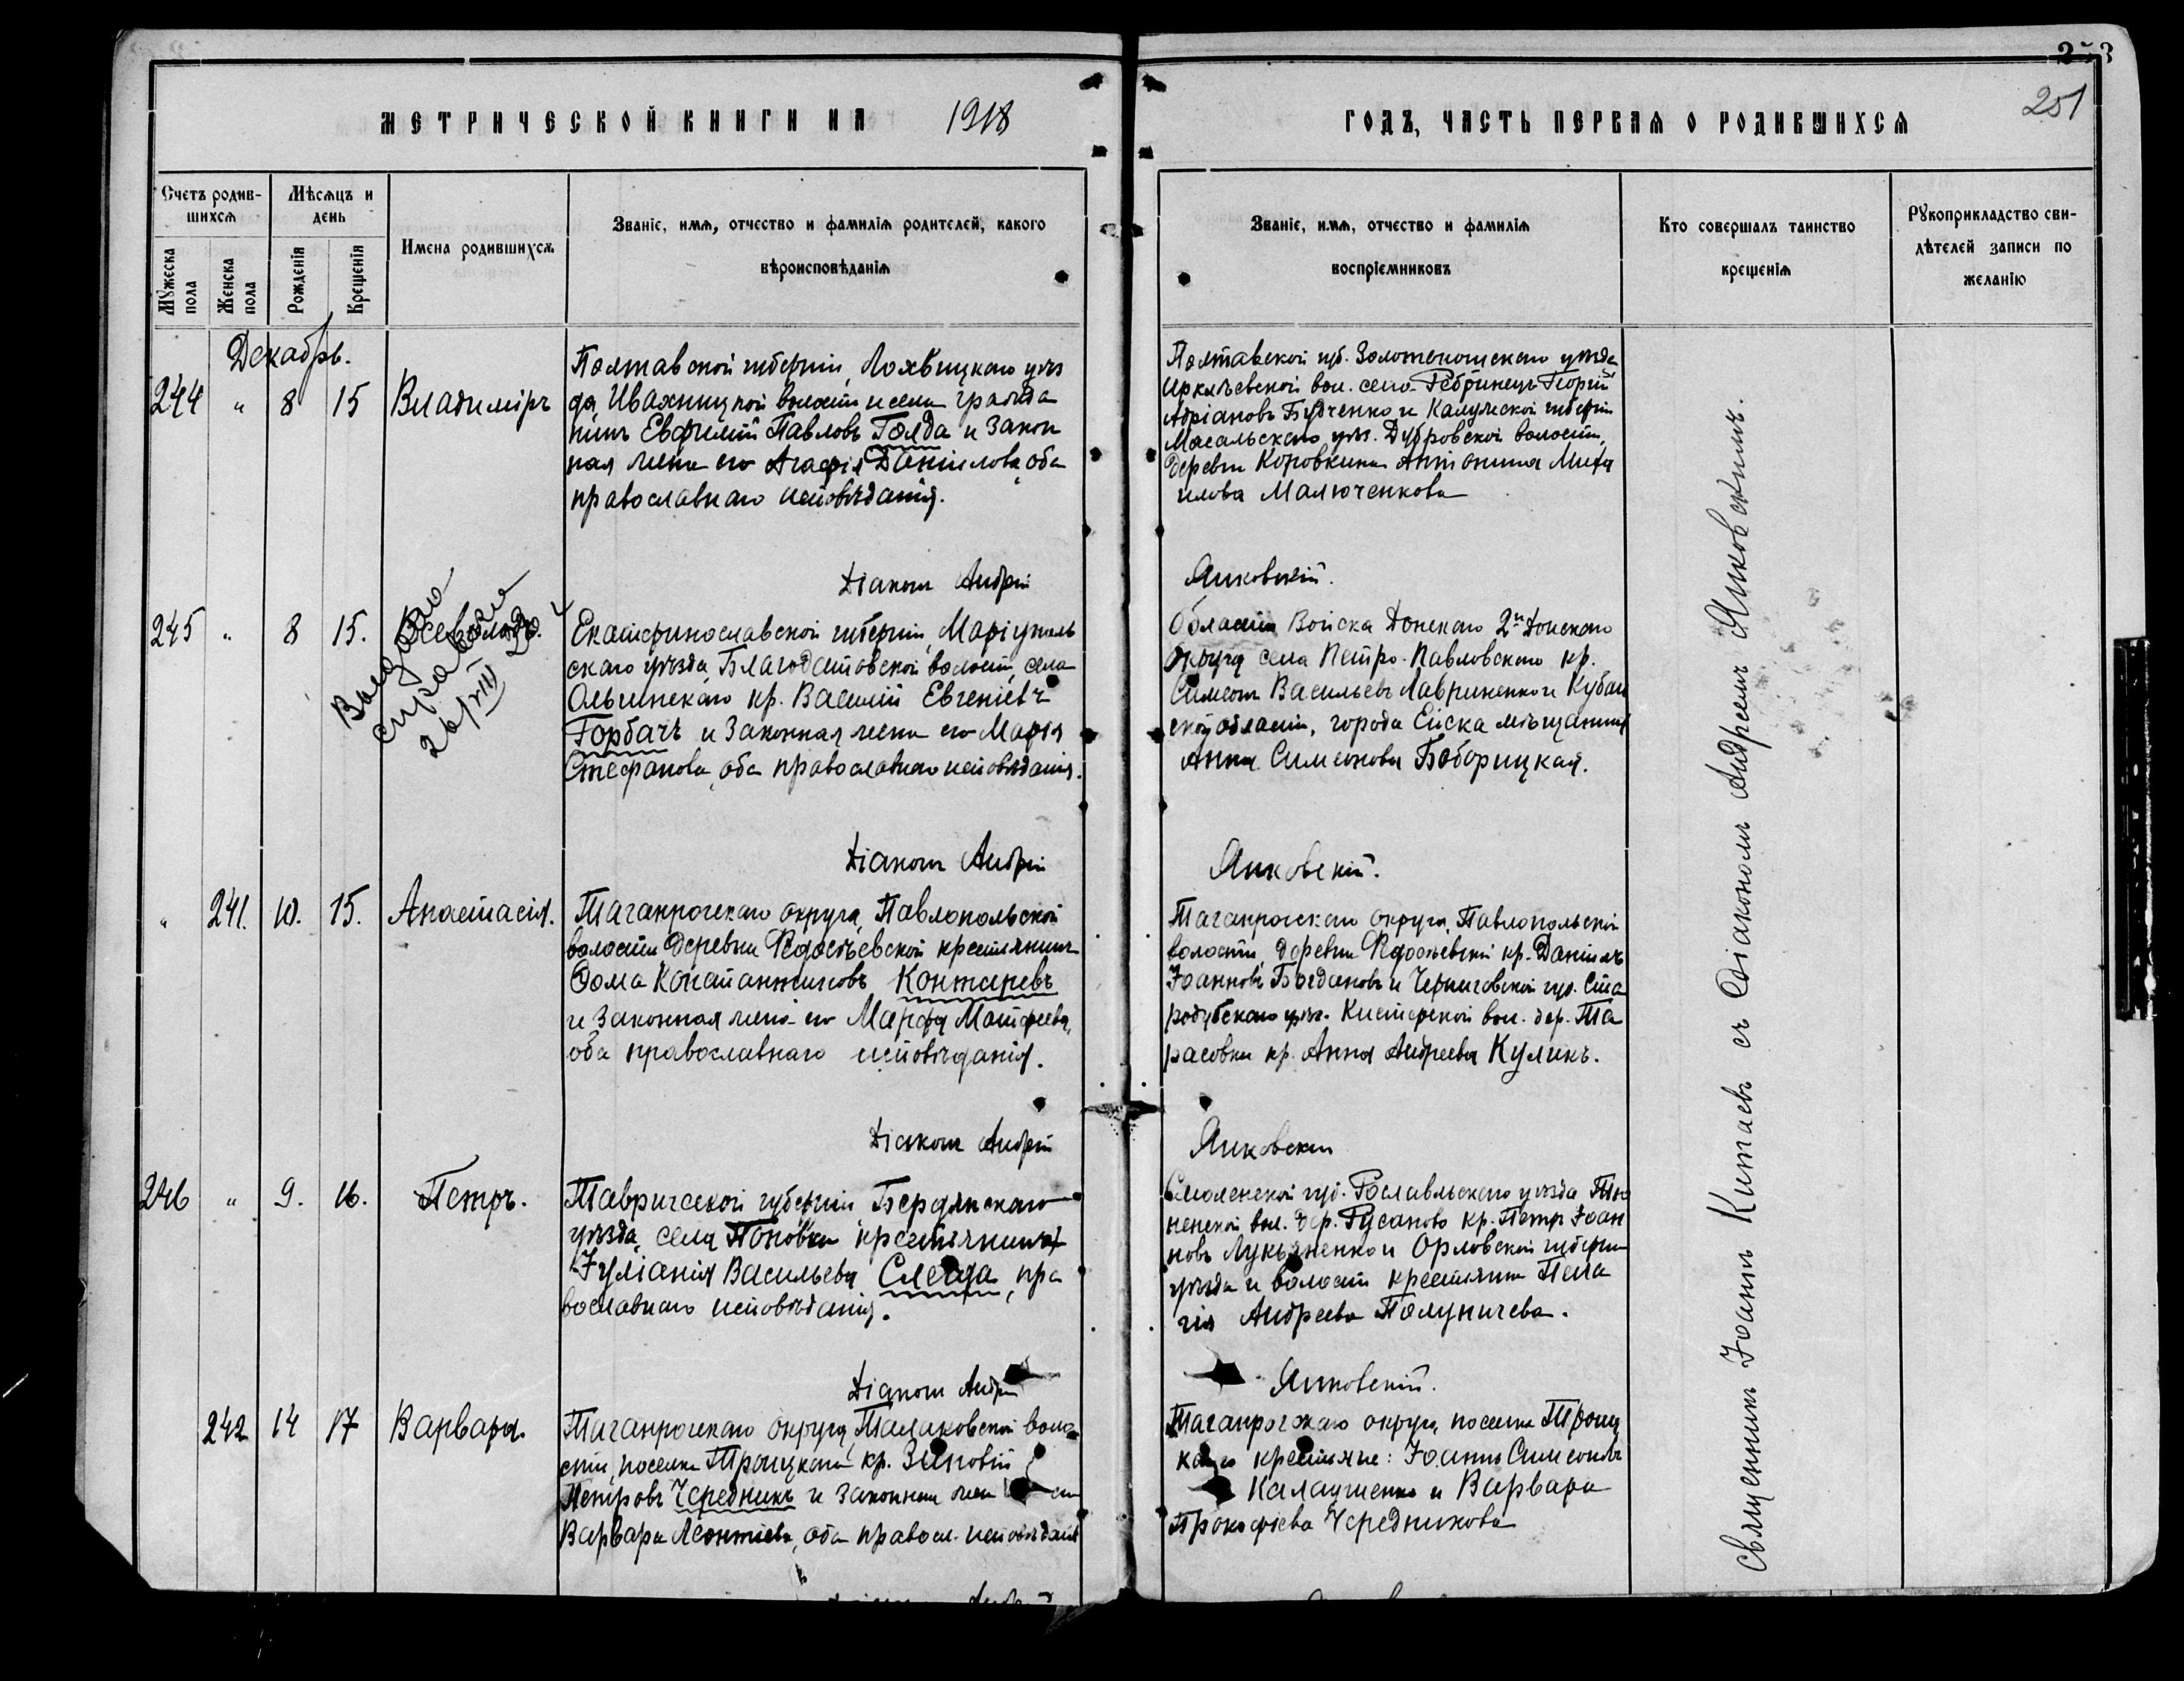 253
251
МЕТРИЧЕСКОЙ КНИГИ НА 1918
ГОДЪ, ЧАСТЬ ПЕРВАЯ О РОДИВШИХСЯ
Счетъ родив-
шихся
Мужеска
пола
Женска
пола
Мѣсяцъ и
день
Рожденія
Крещенія
Имена родившихся
Званіе, имя, отчество и фамилія родителей, какого
вѣроисповѣданія
Званіе, имя, отчество и фамилія
воспріемниковъ
Кто совершалъ таинство
крещенія
Рукоприкладство сви-
дѣтелей записи по
желанію
Декабрь.
244 " 8 15 Владиміръ
Полтавской губерніи, Лохвицкаго уѣз
да, Ивахницкой волости и села гражда
нинъ Евфимій Павловъ Голда и закон
ная жена его Агафія Даніилова, оба
православнаго исповѣданія.
Полтавской губ. Золотоношскаго уѣзда
Ирклѣевской вол. село Георгій
Адріановъ Бубченко и Калужской губерніи
Масальскаго уѣз. Дубровской волости,
деревни Коровкина Антонина Миха
илова Малюченкова
Діаконъ Андрей
Янковскій.
245 " 8 15. Всеволодъ.
Выдано
справка
26/VIII 20
Екатеринославской губерніи, Маріуполь
скаго уѣзда, Благодатовской волости, села
Ольгинскаго кр. Василій Евгеніевъ
Горбачъ и законная жена его Марія
Стефанова, оба православнаго исповѣданія.
Области Войска Донского 2го Донского
округа села Петро-Павловскаго кр.
Симеонъ Васильевъ Лавриненко и Кубан
ской области, города Ейска мѣщанина
Анна Симеонова Боборицкая.
Діаконъ Андрей
Янковскій.
" 241. 10. 15. Анастасія.
Таганрогскаго округа, Павлопольской
волости деревни Федосѣевской крестьянинъ
Фома Контаревъ
и законная жена его Марфа Матфеева,
оба православнаго исповѣданія.
Таганрогскаго округа, Павлопольской
волости, деревни Федосѣевской кр. Даніилъ
Іоанновъ Богдановъ и Черниговской губ. Ста
родубскаго уѣз. Кистерской вол. дер. Та
расовки кр. Анна Андреева Куликъ.
Діаконъ Андрей
Янковскій
246 " 9. 16. Петръ.
Таврической губерніи Бердянскаго
уѣзда, села Поповки крестьянина
Іуліанія Васильева, пра
вославнаго исповѣданія.
Смоленской губ. Рославльскаго уѣзда
вол. дер. Русаново кр. Петръ Іоан
новъ Лукьяненко и Орловской губерніи
уѣзда и волости крестьянка Пела
гія Андреева Полуничева.
Діаконъ Андрей
Янковскій.
242 14 17 Варвара.
Таганрогскаго округа, Талаковской воло
сти, поселка Троицкаго кр. Зиновій
Петровъ Чередникъ и законная жена его
Варвара Леонтіева, оба правосл. исповѣданія
Таганрогскаго округа, поселка Троиц
каго крестьяне: Іоаннъ Симеоновъ
Калашенко и Варвара
Прокофіева Чередникова
Священникъ Іоаннъ Китаевъ съ Діакономъ Андреемъ Янковскимъ.